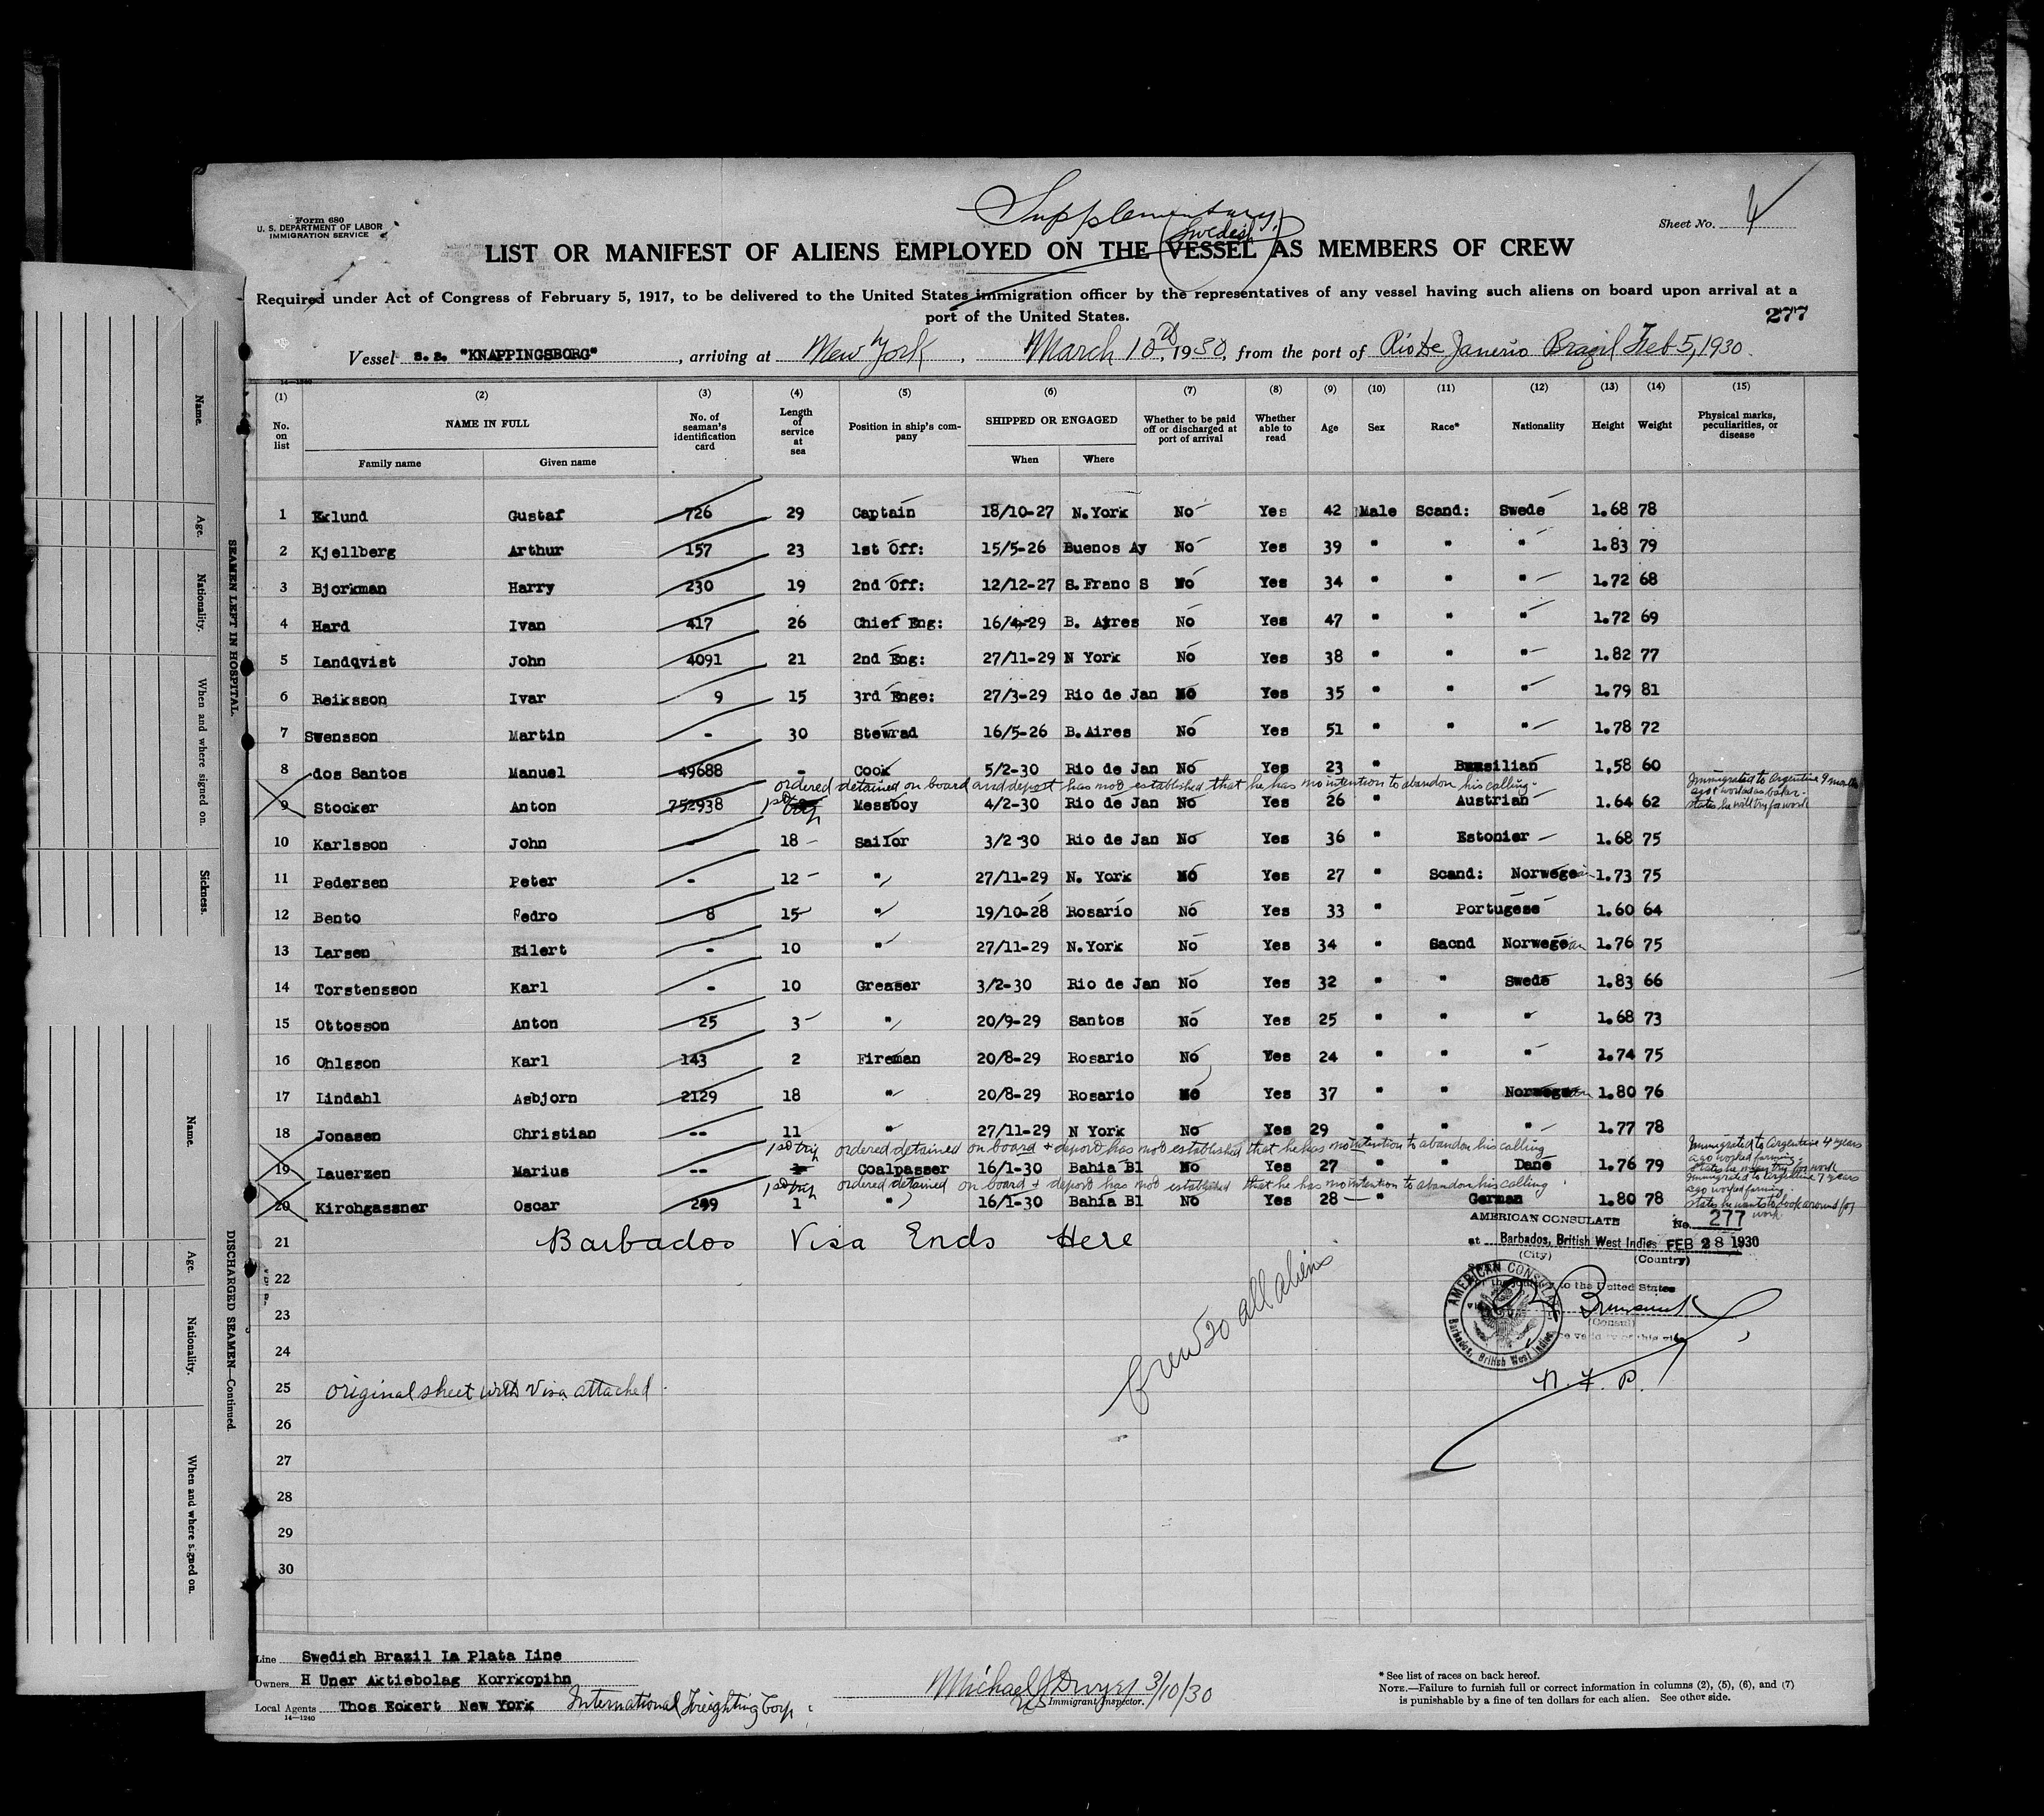 Supplementary
Form 680
U. S. DEPARTMENT OF LABOR
IMMIGRATION SERVICE
Sheet No. 4
Swedish
LIST OR MANIFEST OF ALIENS EMPLOYED ON THE VESSEL AS MEMBERS OF CREW
Required under Act of Congress of February 5, 1917, to be delivered to the United States immigration officer by the representatives of any vessel having such aliens on board upon arrival at a
port of the United States.
277
Vessel s.s. "KNAPPINGSBORG", arriving at New York, March 10th, 1930, from the port of Rio De Janerio Brazil Feb 5, 1930.
14—1240
(1) (2) (3) (4) (5) (6) (7) (8) (9) (10) (11) (12) (13) (14) (15)
No. on list NAME IN FULL Family name Given name No. of seaman's identification card Length of service at sea Position in ship's company SHIPPED OR ENGAGED When Where Whether to be paid off or discharged at port of arrival Whether able to read Age Sex Race* Nationality Height Weight Physical marks, peculiarities, or disease
1 Eklund Gustaf 726 29 Captain 18/10-27 N.York No Yes 42 Male Scand: Swede 1.68 78
2 Kjellberg Arthur 157 23 1st Off: 15/5-26 Buenos Ay No Yes 39 " " " 1.83 79
3 Bjorkman Harry 230 19 2nd Off: 12/12-27 S.Franc S No Yes 34 " " " 1.72 68
4 Hard Ivan 417 26 Chief Eng: 16/4-29 B. Aires No Yes 47 " " " 1.72 69
5 Landqvist John 4091 21 2nd Eng: 27/11-29 N York No Yes 38 " " " 1.82 77
6 Reiksson Ivar 9 15 3rd Enge: 27/3-29 Rio de Jan No Yes 35 " " " 1.79 81
7 Swensson Martin - 30 Stewrad 16/5-26 B.Aires No Yes 51 " " " 1.78 72
8 dos Santos Manuel 49688 - Cook 5/2-30 Rio de Jan No Yes 23 " Brasilian 1.58 60
ordered detained on board and deport has not established that he has no intention to abandon his calling.
Immigrated to Argentine 9 months
ago & worked as baker.
States he will try for work
9 Stocker Anton 752938 1st trip Messboy 4/2-30 Rio de Jan No Yes 26 " Austrian 1.64 62
10 Karlsson John - 18 Sailor 3/2-30 Rio de Jan No Yes 36 " Estonier 1.68 75
11 Pedersen Peter - 12 " 27/11-29 N. York No Yes 27 " Scand: Norwegean 1.73 75
12 Bento Pedro 8 15 " 19/10-28 Rosario No Yes 33 " Portugese 1.60 64
13 Larsen Eilert - 10 " 27/11-29 N.York No Yes 34 " Sacnd Norwegean 1.76 75
14 Torstensson Karl - 10 Greaser 3/2-30 Rio de Jan No Yes 32 " " Swede 1.83 66
15 Ottosson Anton 25 3 " 20/9-29 Santos No Yes 25 " " " 1.68 73
16 Ohlsson Karl 143 2 Fireman 20/8-29 Rosario No Yes 24 " " " 1.74 75
17 Lindahl Asbjorn 2129 18 " 20/8-29 Rosario No Yes 37 " " Norwegean 1.80 76
18 Jonasen Christian -- 11 " 27/11-29 N York No Yes 29 " " " 1.77 78
1st trip ordered detained on board & deport has not established that he has no intention to abandon his calling
Immigrated to Argentine 4 years
ago worked farming.
States he may try for work
19 Lauerzen Marius -- 1 Coalpasser 16/1-30 Bahia Bl No Yes 27 " " Dane 1.76 79
1st trip ordered detained on board & deport has not established that he has no intention to abandon his calling
Immigrated to Argentine 7 years
ago worked farming
States he wants to look around for
work
20 Kirchgassner Oscar 249 1 " 16/1-30 Bahia Bl No Yes 28 " German 1.80 78
21 Barbados Visa Ends Here
AMERICAN CONSULATE No. 277
at Barbados, British West Indies FEB 28 1930
(City) (Country)
to the United States
AMERICAN CONSULATE
Barbados, British West Indies
(Consul)
22
23
24
Crew 20 all aliens
25 original sheet with Visa attached.
26
27
28
29
30
Line Swedish Brazil La Plata Line
Owners H Uner Aktiebolag Korrkopihn
Local Agents Thos Eckert New York International Freighting Corp.
14—1240
Michael J Dwyer 3/10/30
US Immigrant Inspector.
* See list of races on back hereof.
NOTE.—Failure to furnish full or correct information in columns (2), (5), (6), and (7)
is punishable by a fine of ten dollars for each alien. See other side.
SEAMEN LEFT IN HOSPITAL.
Name. Age. Nationality. When and where signed on. Sickness.
DISCHARGED SEAMEN—Continued.
Name. Age. Nationality. When and where signed on.